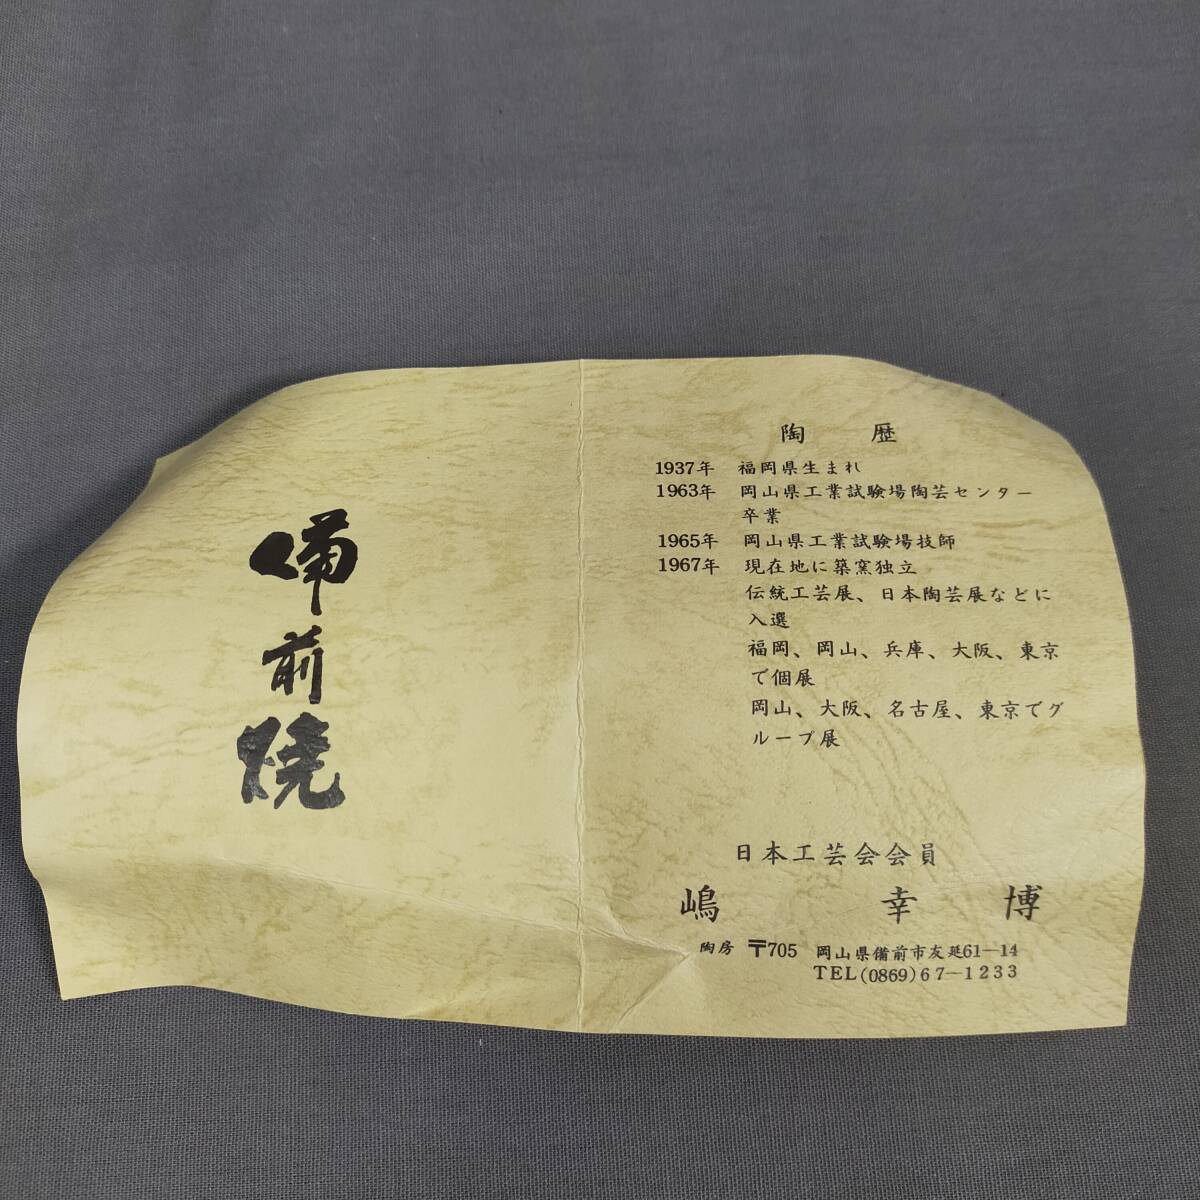 備前焼
陶歴
1937年 福岡県生まれ
1963年 岡山県工業試験場陶芸センター
卒業
1965年 岡山県工業試験場技師
1967年 現在地に築窯独立
伝統工芸展、日本陶芸展などに
入選
福岡、岡山、兵庫、大阪、東京
で個展
岡山、大阪、名古屋、東京でグ
ループ展
日本工芸会会員
嶋 幸博
陶房 〒705 岡山県備前市友延61-14
TEL(0869)67-1233